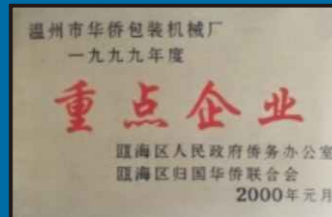 温州市华侨包装机械厂
一九九九年度
重点企业
瓯海区人民政府侨务办公室
瓯海区归国华侨联合会
2000年元月